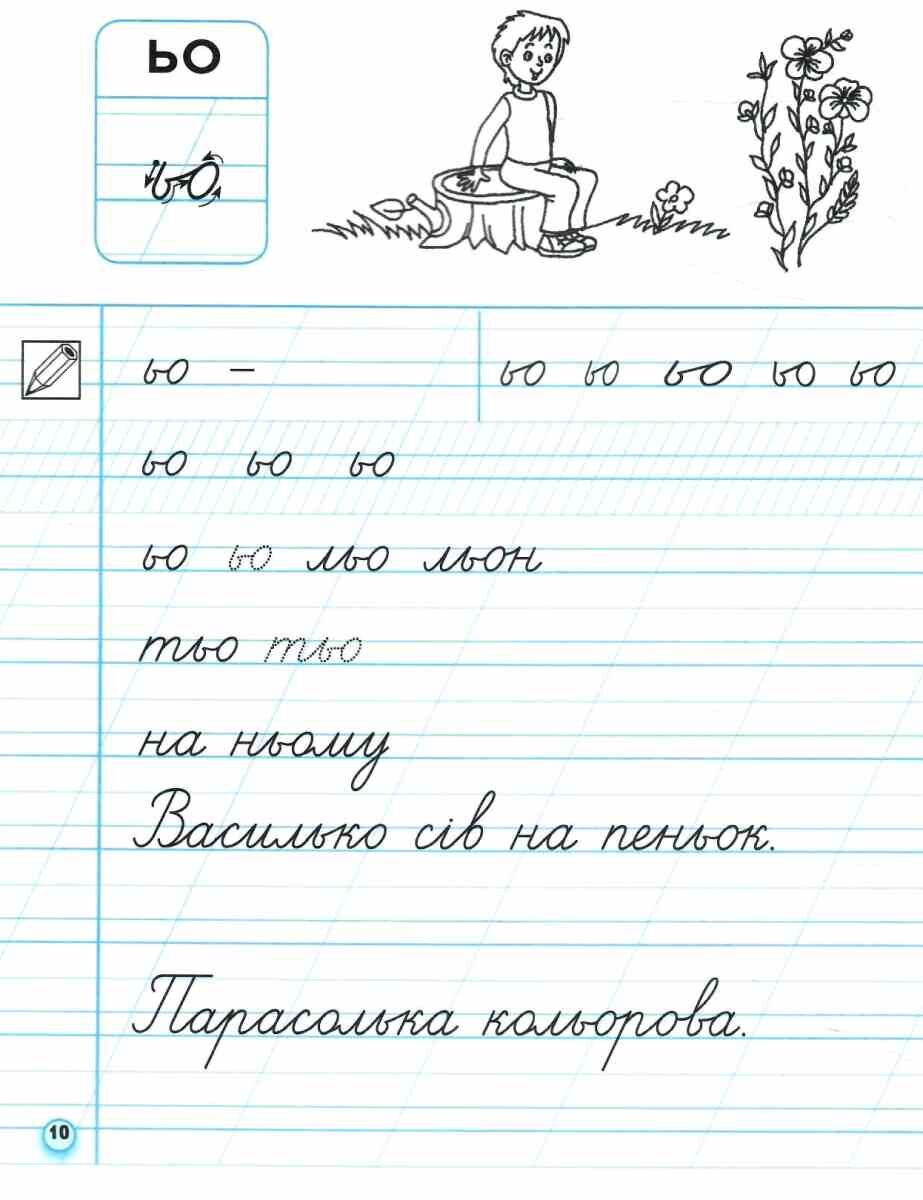 ьо
ьо
ьо –
ьо ьо ьо ьо ьо
ьо ьо ьо
ьо ьо льо льон
тьо тьо
на ньому
Василько сів на пеньок.
Парасолька кольорова.
10